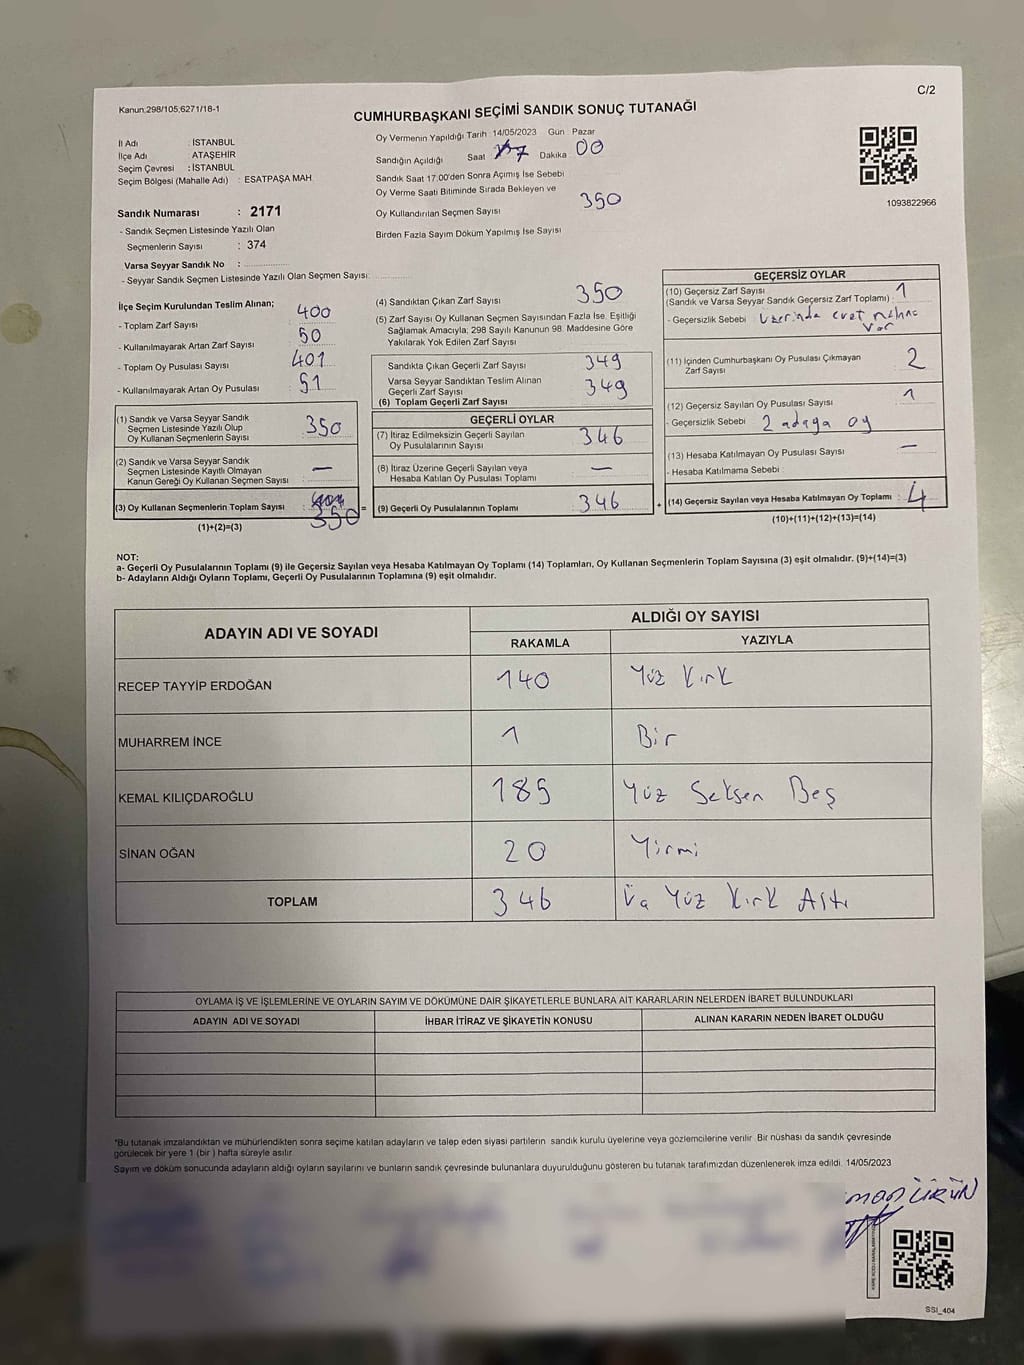 Kanun:298/105,6271/18-1
C/2
CUMHURBAŞKANI SEÇİMİ SANDIK SONUÇ TUTANAĞI
İl Adı : İSTANBUL
İlçe Adı : ATAŞEHİR
Seçim Çevresi : İSTANBUL
Seçim Bölgesi (Mahalle Adı) : ESATPAŞA MAH.
Oy Vermenin Yapıldığı Tarih : 14/05/2023 Gün : Pazar
Sandığın Açıldığı Saat 17 Dakika 00
Sandık Saat 17.00'den Sonra Açımış İse Sebebi
Oy Verme Saati Bitiminde Sırada Bekleyen ve
Oy Kullandırılan Seçmen Sayısı 350
Birden Fazla Sayım Döküm Yapılmış İse Sayısı
1093822966
Sandık Numarası : 2171
- Sandık Seçmen Listesinde Yazılı Olan
Seçmenlerin Sayısı : 374
Varsa Seyyar Sandık No :
- Seyyar Sandık Seçmen Listesinde Yazılı Olan Seçmen Sayısı:
İlçe Seçim Kurulundan Teslim Alınan;
- Toplam Zarf Sayısı : 400
- Kullanılmayarak Artan Zarf Sayısı : 50
- Toplam Oy Pusulası Sayısı : 401
- Kullanılmayarak Artan Oy Pusulası : 51
(1) Sandık ve Varsa Seyyar Sandık
Seçmen Listesinde Yazılı Olup
Oy Kullanan Seçmenlerin Sayısı : 350
(2) Sandık ve Varsa Seyyar Sandık
Seçmen Listesinde Kayıtlı Olmayan
Kanun Gereği Oy Kullanan Seçmen Sayısı : —
(3) Oy Kullanan Seçmenlerin Toplam Sayısı : 350 =
(1)+(2)=(3)
(4) Sandıktan Çıkan Zarf Sayısı 350
(5) Zarf Sayısı Oy Kullanan Seçmen Sayısından Fazla İse, Eşitliği
Sağlamak Amacıyla; 298 Sayılı Kanunun 98. Maddesine Göre
Yakılarak Yok Edilen Zarf Sayısı
Sandıkta Çıkan Geçerli Zarf Sayısı : 349
Varsa Seyyar Sandıktan Teslim Alınan
Geçerli Zarf Sayısı
(6) Toplam Geçerli Zarf Sayısı : 349
GEÇERLİ OYLAR
(7) İtiraz Edilmeksizin Geçerli Sayılan
Oy Pusulasının Sayısı : 346
(8) İtiraz Üzerine Geçerli Sayılan veya
Hesaba Katılan Oy Pusulası Toplamı : —
(9) Geçerli Oy Pusulalarının Toplamı : 346 +
GEÇERSİZ OYLAR
(10) Geçersiz Zarf Sayısı
(Sandık ve Varsa Seyyar Sandık Geçersiz Zarf Toplamı) : 1
- Geçersizlik Sebebi : Üzerinde evet mührü
var
(11) İçinden Cumhurbaşkanı Oy Pusulası Çıkmayan
Zarf Sayısı 2
(12) Geçersiz Sayılan Oy Pusulası Sayısı 1
- Geçersizlik Sebebi : 2 adaya oy
(13) Hesaba Katılmayan Oy Pusulası Sayısı : —
- Hesaba Katılmama Sebebi
(14) Geçersiz Sayılan veya Hesaba Katılmayan Oy Toplamı : 4
(10)+(11)+(12)+(13)=(14)
NOT:
a- Geçerli Oy Pusulalarının Toplamı (9) ile Geçersiz Sayılan veya Hesaba Katılmayan Oy Toplamı (14) Toplamları, Oy Kullanan Seçmenlerin Toplam Sayısına (3) eşit olmalıdır. (9)+(14)=(3)
b- Adayların Aldığı Oyların Toplamı, Geçerli Oy Pusulalarının Toplamına (9) eşit olmalıdır.
ADAYIN ADI VE SOYADI ALDIĞI OY SAYISI
RAKAMLA YAZIYLA
RECEP TAYYİP ERDOĞAN 140 Yüz Kırk
MUHARREM İNCE 1 Bir
KEMAL KILIÇDAROĞLU 185 Yüz Seksen Beş
SİNAN OĞAN 20 Yirmi
TOPLAM 346 Üç Yüz Kırk Altı
OYLAMA İŞ VE İŞLEMLERİNE VE OYLARIN SAYIM VE DÖKÜMÜNE DAİR ŞİKAYETLERLE BUNLARA AİT KARARLARIN NELERDEN İBARET BULUNDUKLARI
ADAYIN ADI VE SOYADI İHBAR İTİRAZ VE ŞİKAYETİN KONUSU ALINAN KARARIN NEDEN İBARET OLDUĞU
*Bu tutanak imzalandıktan ve mühürlendikten sonra seçime katılan adayların ve talep eden siyasi partilerin sandık kurulu üyelerine veya gözlemcilerine verilir. Bir nüshası da sandık çevresinde
görülecek bir yere 1 (bir) hafta süreyle asılır.
Sayım ve döküm sonucunda adayların aldığı oyların sayılarını ve bunların sandık çevresinde bulunanlara duyurulduğunu gösteren bu tutanak tarafımızdan düzenlenerek imza edildi. 14/05/2023
ÜRÜN
SSI_404